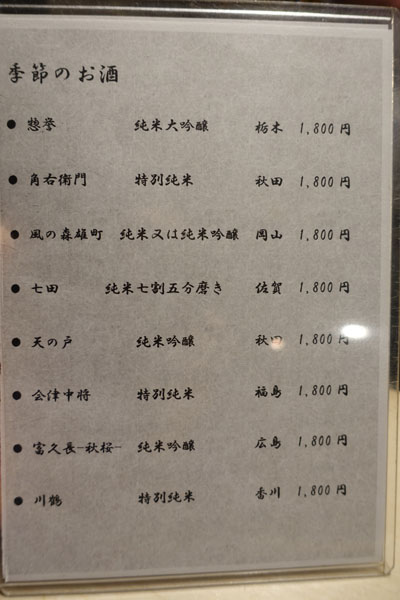 季節のお酒
● 惣誉 純米大吟醸 栃木 1,800円
● 角右衛門 特別純米 秋田 1,800円
● 風の森雄町 純米又は純米吟醸 岡山 1,800円
● 七田 純米七割五分磨き 佐賀 1,800円
● 天の戸 純米吟醸 秋田 1,800円
● 会津中将 特別純米 福島 1,800円
● 富久長-秋桜- 純米吟醸 広島 1,800円
● 川鶴 特別純米 香川 1,800円